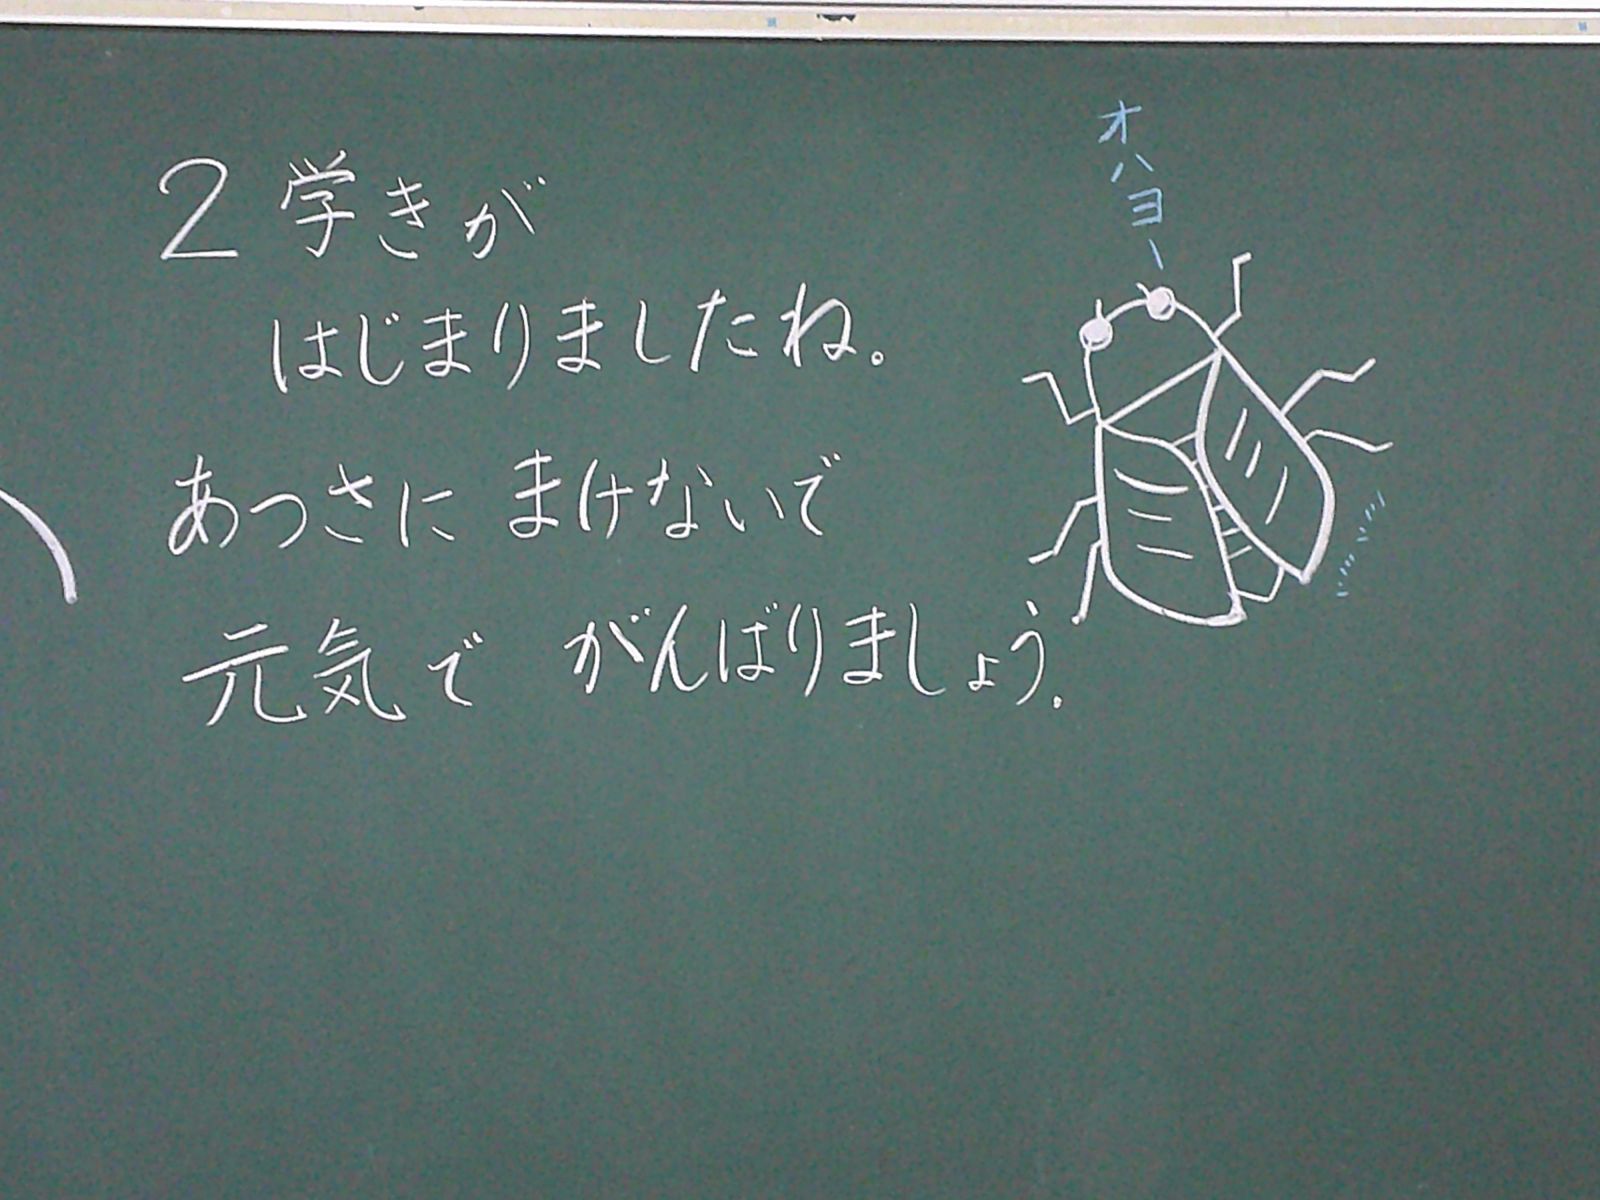 2学きが
はじまりましたね。
あつさに まけないで
元気で がんばりましょう.
オハヨー